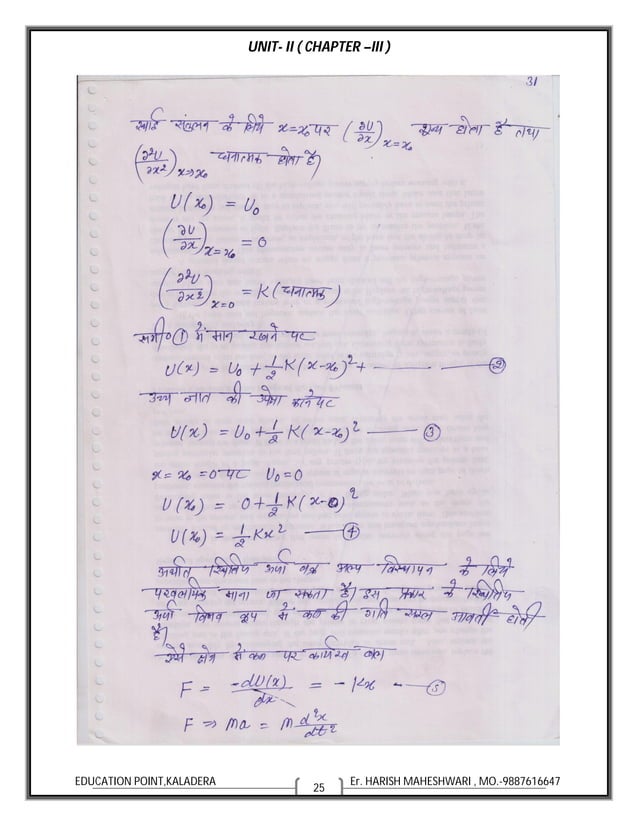 UNIT- II ( CHAPTER –III )
31
स्थाई संतुलन के लिये x=x₀ पर (∂U/∂x)ₓ₌ₓ₀ शून्य होता है तथा
(∂²U/∂x²)ₓ→ₓ₀ धनात्मक होता है)
U(x₀) = U₀
(∂U/∂x)ₓ₌ₓ₀ = 0
(∂²U/∂x²)ₓ₌₀ = K (धनात्मक)
समी० ① में मान रखने पर
U(x) = U₀ + 1/2 K(x-x₀)² + — — — ②
उच्च घात की उपेक्षा करने पर
U(x) = U₀ + 1/2 K(x-x₀)² — ③
x = x₀ = 0 पर U₀ = 0
U(x₀) = 0 + 1/2 K(x-0)²
U(x₀) = 1/2 Kx² — ④
अर्थात स्थितिज ऊर्जा वक्र अल्प विस्थापन के लिये
परवलयिक माना जा सकता है। इस प्रकार के स्थितिज
ऊर्जा विभव कूप में कण की गति सरल आवर्ती होती
है।
ऐसे क्षेत्र में कण पर कार्यरत बल
F = -dU(x)/dx = -Kx - — ⑤
F ⇒ ma = m d²x/dt²
EDUCATION POINT,KALADERA
25
Er. HARISH MAHESHWARI , MO.-9887616647